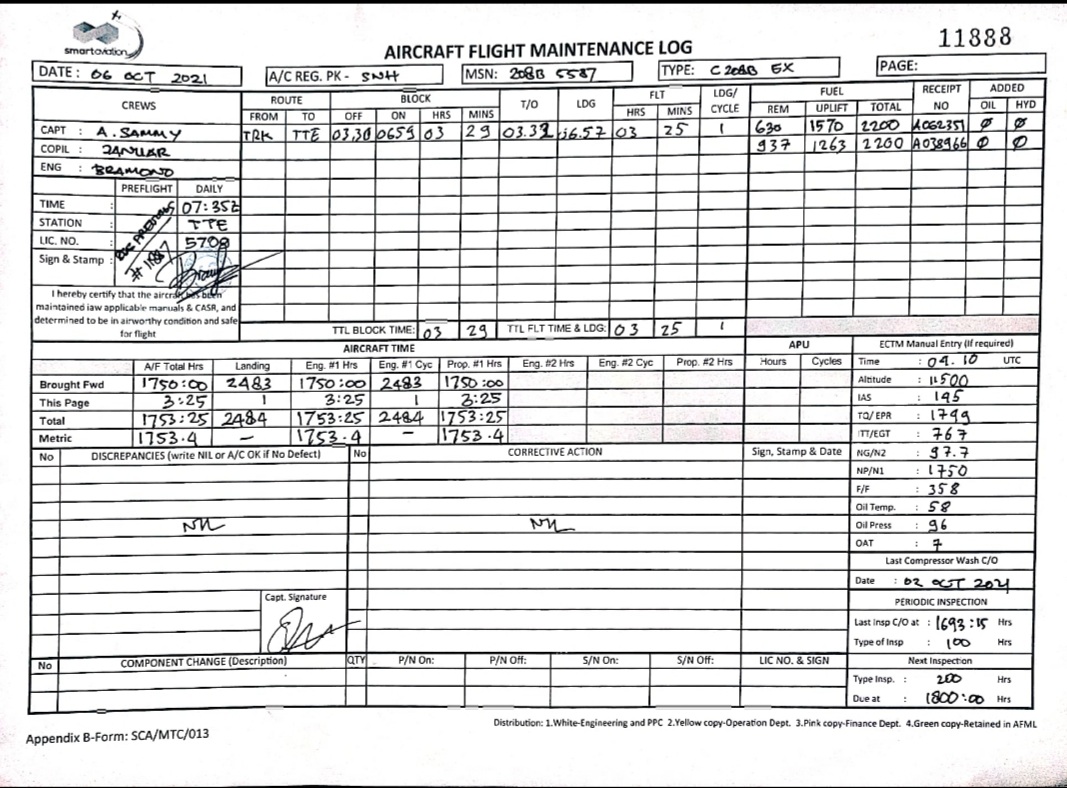 smartaviation
11888
AIRCRAFT FLIGHT MAINTENANCE LOG
DATE : 06 OCT 2021 A/C REG. PK - SNH MSN: 208B 5587 TYPE: C 208B EX PAGE:
CREWS ROUTE BLOCK T/O LDG FLT LDG/ CYCLE FUEL RECEIPT NO ADDED
FROM TO OFF ON HRS MINS HRS MINS REM UPLIFT TOTAL OIL HYD
CAPT : A. SAMMY TRK TTE 03.30 0659 03 29 03.32 06.57 03 25 1 630 1570 2200 A062351 Ø Ø
COPIL : JANUAR 937 1263 2200 A038966 Ø Ø
ENG : BRAMONO
PREFLIGHT DAILY
TIME : 07:35Z
STATION : TTE
LIC. NO. : 5708
Sign & Stamp :
I hereby certify that the aircraft has been
maintained iaw applicable manuals & CASR, and
determined to be in airworthy condition and safe
for flight
TTL BLOCK TIME: 03 29 TTL FLT TIME & LDG: 03 25 1
AIRCRAFT TIME APU ECTM Manual Entry (If required)
A/F Total Hrs Landing Eng. #1 Hrs Eng. #1 Cyc Prop. #1 Hrs Eng. #2 Hrs Eng. #2 Cyc Prop. #2 Hrs Hours Cycles Time : 04.10 UTC
Brought Fwd 1750:00 2483 1750:00 2483 1750:00 Altitude : 11500
This Page 3:25 1 3:25 1 3:25 IAS : 145
Total 1753:25 2484 1753:25 2484 1753:25 TQ/EPR : 1799
Metric 1753.4 - 1753.4 - 1753.4 ITT/EGT : 767
No DISCREPANCIES (write NIL or A/C OK if No Defect) No CORRECTIVE ACTION Sign, Stamp & Date NG/N2 : 97.7
NP/N1 : 1750
F/F : 358
Oil Temp. : 58
NIL NIL Oil Press : 96
OAT : 7
Last Compressor Wash C/O
Date : 02 OCT 2021
Capt. Signature PERIODIC INSPECTION
Last Insp C/O at : 1693:15 Hrs
Type of Insp : 100 Hrs
No COMPONENT CHANGE (Description) QTY P/N On: P/N Off: S/N On: S/N Off: LIC NO. & SIGN Next Inspection
Type Insp. : 200 Hrs
Due at : 1800:00 Hrs
Distribution: 1.White-Engineering and PPC 2.Yellow copy-Operation Dept. 3.Pink copy-Finance Dept. 4.Green copy-Retained in AFML
Appendix B-Form: SCA/MTC/013